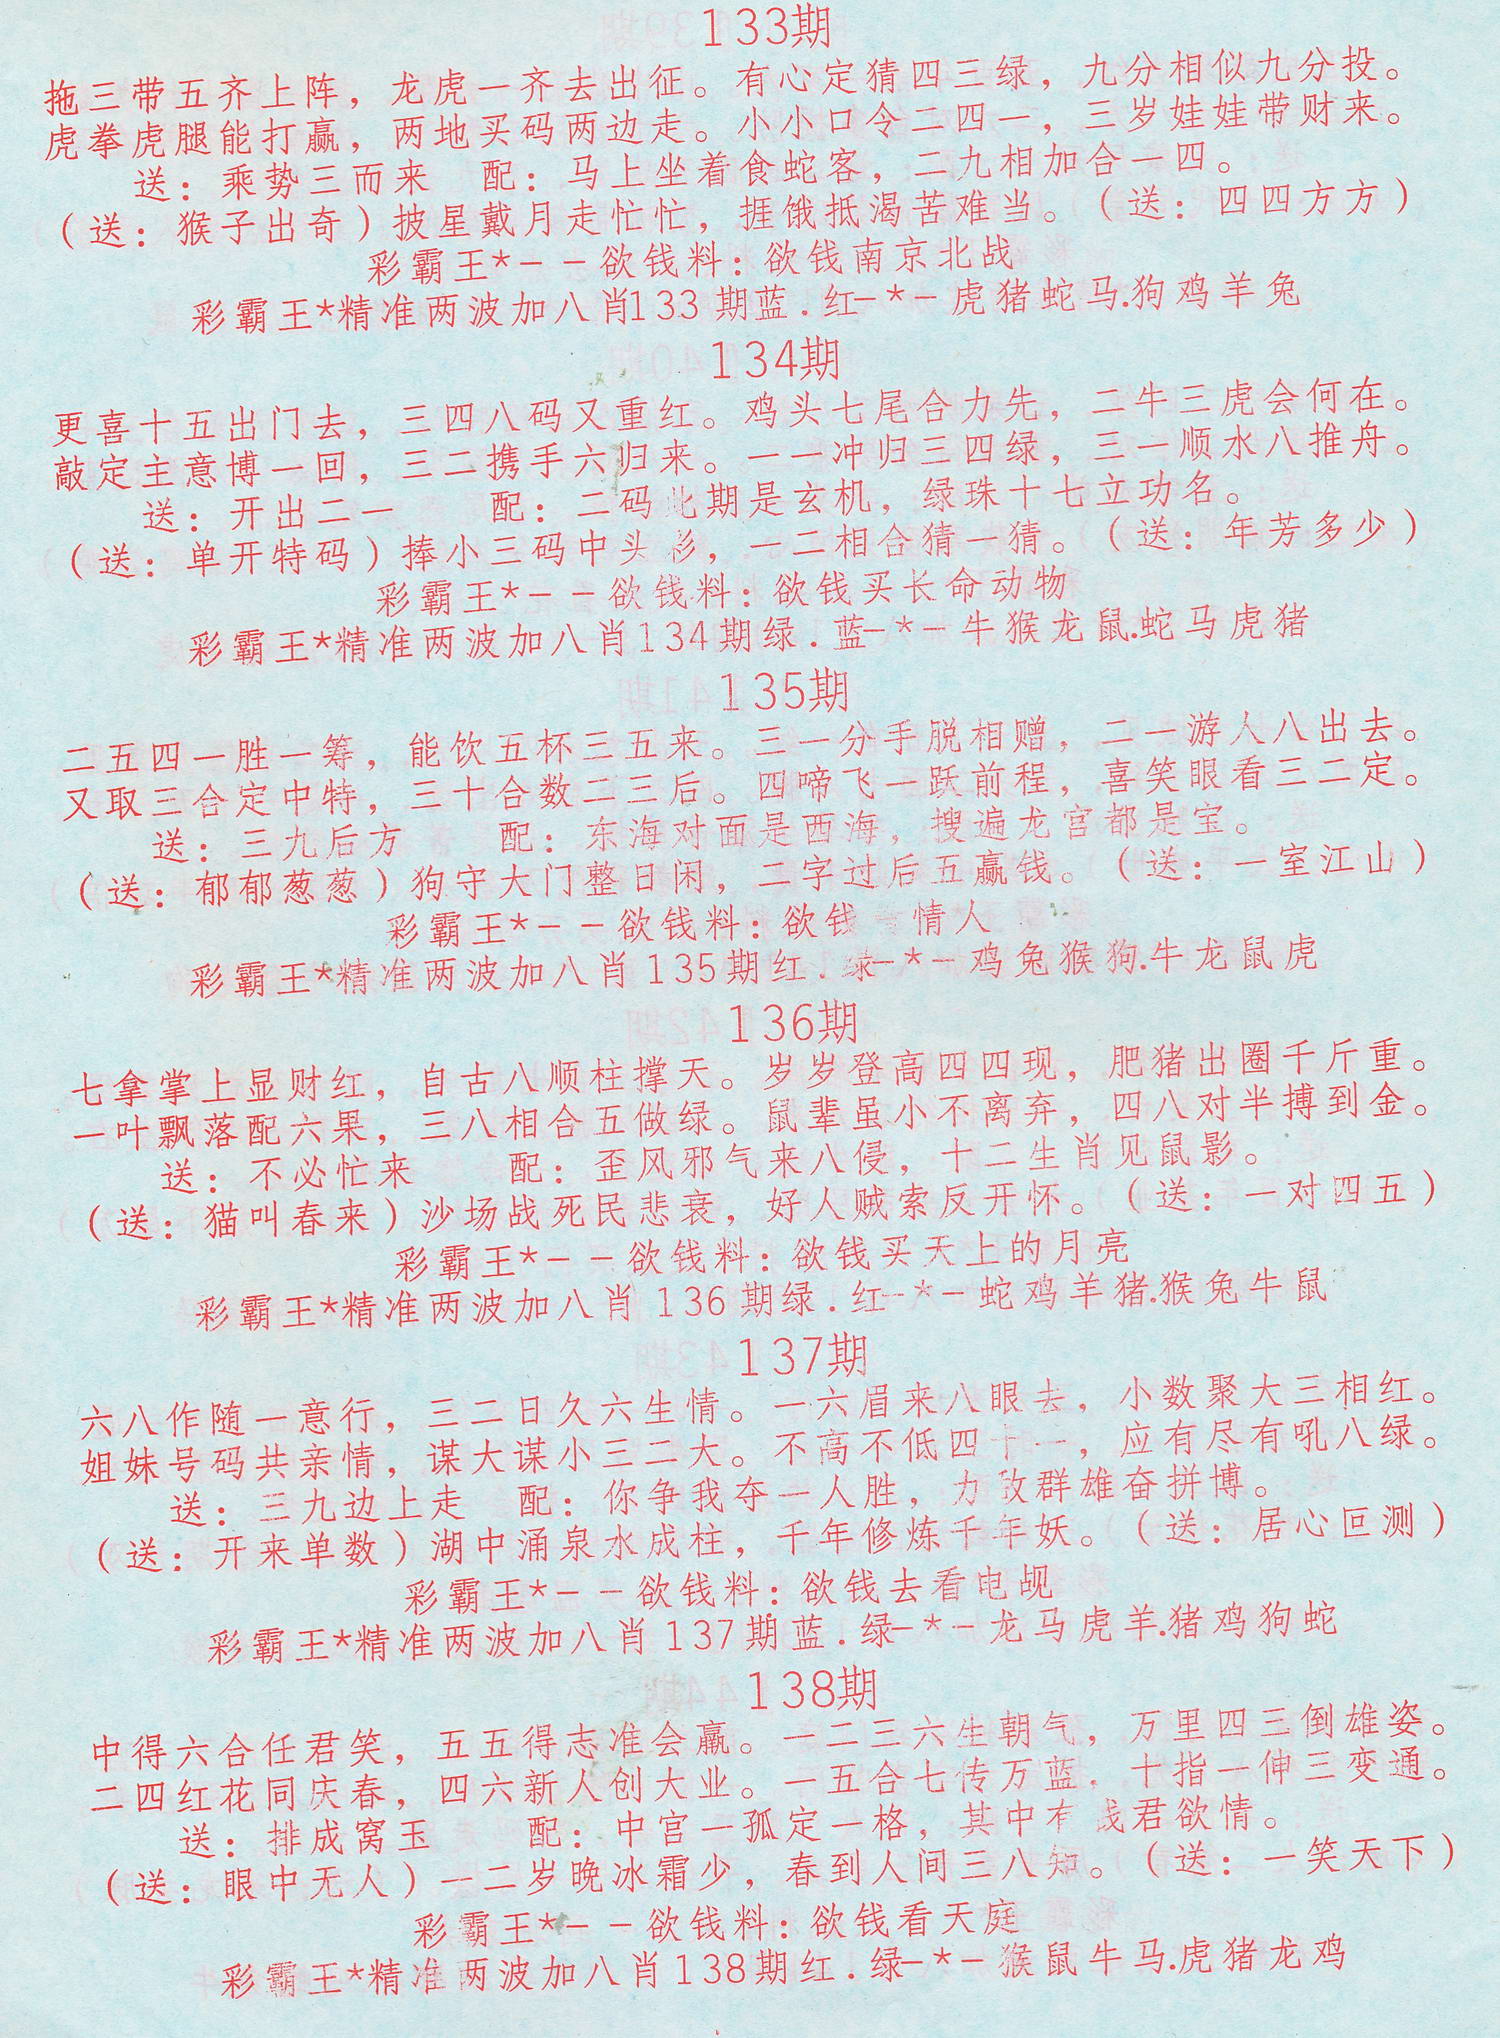 133期
拖三带五齐上阵，龙虎一齐去出征。有心定猜四三绿，九分相似九分投。
虎拳虎腿能打赢，两地买码两边走。小小口令二四一，三岁娃娃带财来。
送：乘势三而来 配：马上坐着食蛇客，二九相加合一四。
（送：猴子出奇）披星戴月走忙忙，捱饿抵渴苦难当。（送：四四方方）
彩霸王*--欲钱料：欲钱南京北战
彩霸王*精准两波加八肖133期蓝.红-*-虎猪蛇马.狗鸡羊兔
134期
更喜十五出门去，三四八码又重红。鸡头七尾合力先，二牛三虎会何在。
敲定主意博一回，三二携手六归来。一一冲归三四绿，三一顺水八推舟。
送：开出二一 配：二码此期是玄机，绿珠十七立功名。
（送：单开特码）捧小三码中头彩，一二相合猜一猜。（送：年芳多少）
彩霸王*--欲钱料：欲钱买长命动物
彩霸王*精准两波加八肖134期绿.蓝-*-牛猴龙鼠.蛇马虎猪
135期
二五四一胜一筹，能饮五杯三五来。三一分手脱相赠，二一游人八出去。
又取三合定中特，三十合数二三后。四啼飞一跃前程，喜笑眼看三二定。
送：三九后方 配：东海对面是西海，搜遍龙宫都是宝。
（送：郁郁葱葱）狗守大门整日闲，二字过后五赢钱。（送：一室江山）
彩霸王*--欲钱料：欲钱 情人
彩霸王*精准两波加八肖135期红.绿-*-鸡兔猴狗.牛龙鼠虎
136期
七拿掌上显财红，自古八顺柱撑天。岁岁登高四四现，肥猪出圈千斤重。
一叶飘落配六果，三八相合五做绿。鼠辈虽小不离弃，四八对半搏到金。
送：不必忙来 配：歪风邪气来八侵，十二生肖见鼠影。
（送：猫叫春来）沙场战死民悲衰，好人贼索反开怀。（送：一对四五）
彩霸王*--欲钱料：欲钱买天上的月亮
彩霸王*精准两波加八肖136期绿.红-*-蛇鸡羊猪.猴兔牛鼠
137期
六八作随一意行，三二日久六生情。一六眉来八眼去，小数聚大三相红。
姐妹号码共亲情，谋大谋小三二大。不高不低四十一，应有尽有吼八绿。
送：三九边上走 配：你争我夺一人胜，力敌群雄奋拼博。
（送：开来单数）湖中涌泉水成柱，千年修炼千年妖。（送：居心叵测）
彩霸王*--欲钱料：欲钱去看电觇
彩霸王*精准两波加八肖137期蓝.绿-*-龙马虎羊.猪鸡狗蛇
138期
中得六合任君笑，五五得志准会赢。一二三六生朝气，万里四三倒雄姿。
二四红花同庆春，四六新人创大业。一五合七传万蓝，十指一伸三变通。
送：排成窝玉 配：中宫一孤定一格，其中有 君欲情。
（送：眼中无人）一二岁晚冰霜少，春到人间三八知。（送：一笑天下）
彩霸王*--欲钱料：欲钱看天庭
彩霸王*精准两波加八肖138期红.绿-*-猴鼠牛马.虎猪龙鸡